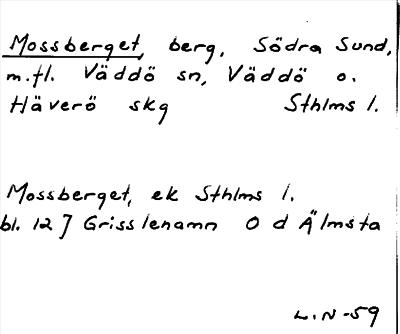 Mossberget, berg, Södra Sund,
m.fl. Väddö sn, Väddö o.
Häverö skg Sthlms l.
Mossberget, ek Sthlms l.
bl. 12 J Grisslehamn O d Älmsta
L.N-59